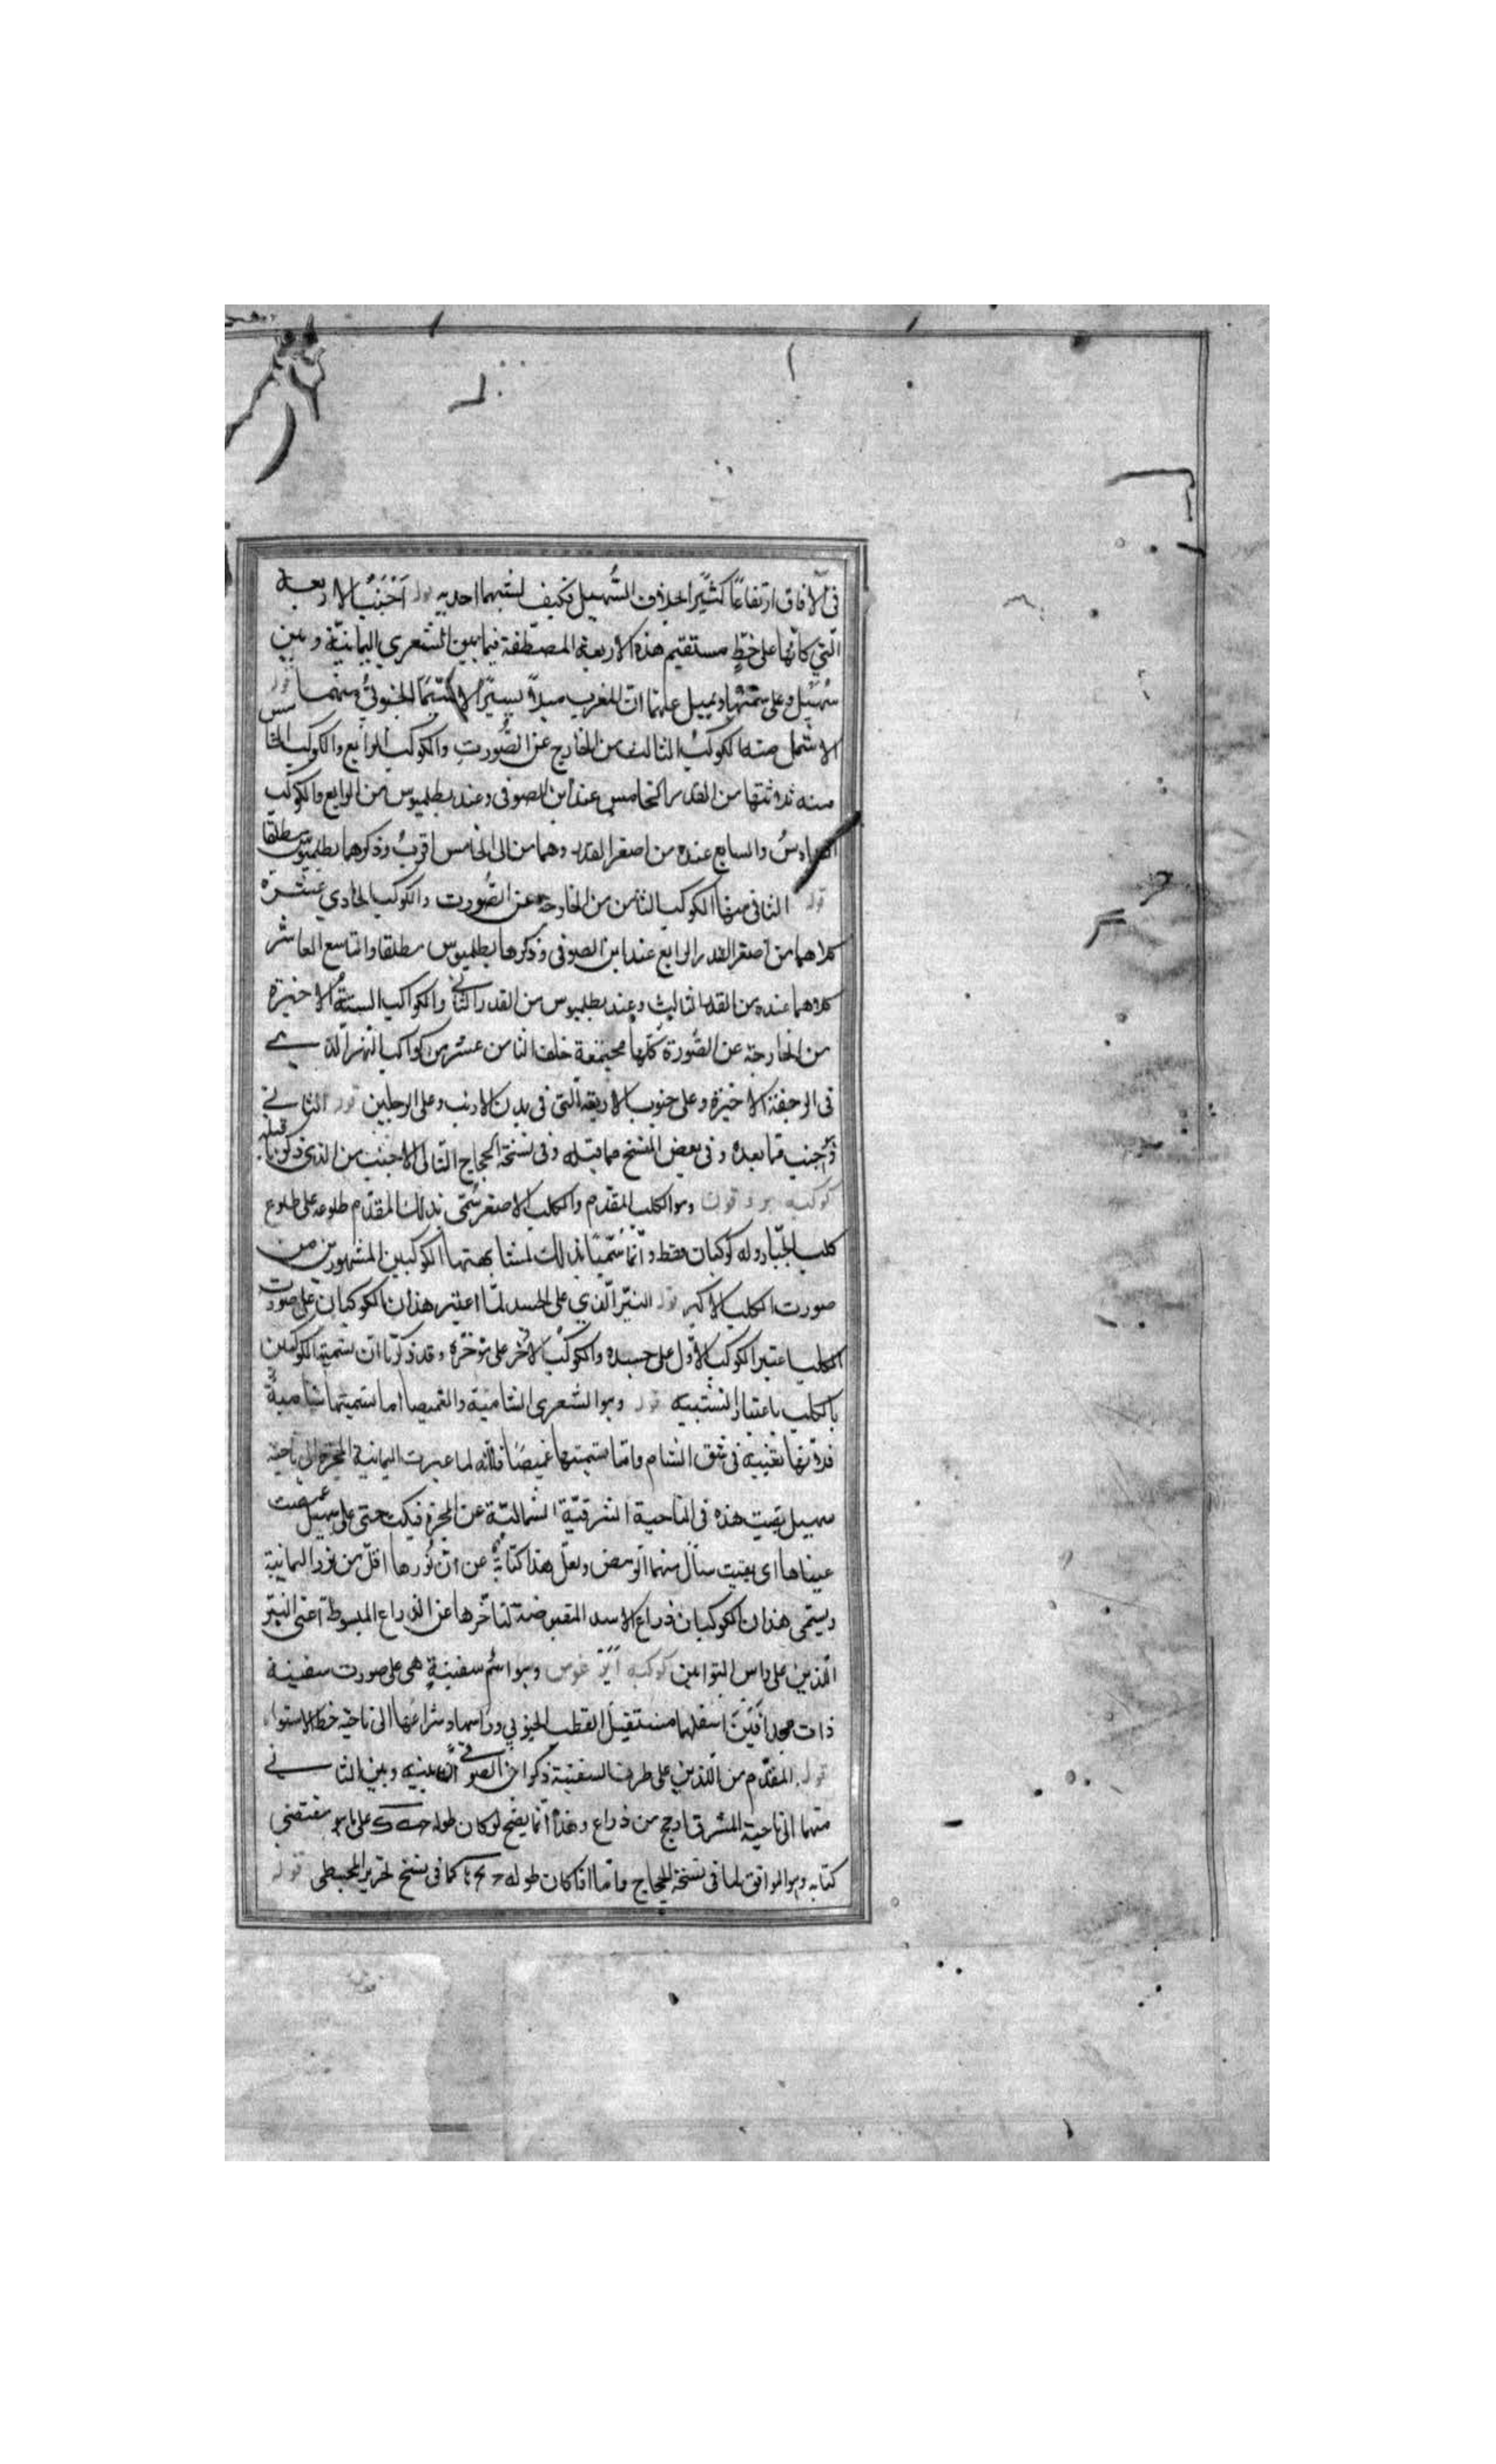 في الآفاق ارتفاعًا كثيرًا بخلاف السُّهيل فكيف لشبهها احديه قوله اَجْنَبُ الاربعة
الّتي كانّها على خطٍّ مستقيم هذه الاربعة المصطفة فيما بين الشعري اليمانيّة وبين
سُهَيْل وعلى سمتها ويميل عنها الى المغرب ميلاً يسيرًا الجنوبيُّ منهما قوله
الاشمل منه الكوكبُ الثالث من الخارج عن الصُّورت والكوكب الرابع والكوكب الخامس
منه ثلاثتها من القدر الخامس عند ابن الصوفي وعند بطلميوس من الرابع والكوكب
السادسُ والسابع عنده من اصغر القدر وهما من الى الخامس اقربُ وذكرهما بطلميوس مطلقا
قوله الثاني منها الكوكب الثامن من الخارجة عن الصُّورت والكوكب الحادي عشرة
كلاهما من اصغر القدر الرابع عند ابن الصوفي وذكرها بطلميوس مطلقا والتاسع العاشر
كلاهما عنده من القدر الثالث وعند بطلميوس من القدر الثاني والكواكب الستّةُ الاخيرة
من الخارجة عن الصُّورة كُلّها مجتمعة خلف الثامن عشر من كواكب النهر الّذي
في الرجفة الاخيرة وعلى جنوب الاربعة الّتي في بدن الارنب وعلى الرجلين قوله الثاني
واجنب مما بعده وفي بعض النسخ مما قبله وفي نسخة الحجاج التالي الاجنب من الذي ذكرنا قبله
كوكبه برو قون وهو الكلب المقدّم والكلب الاصغر سُمّي بذلك لمقدّم طلوعه على طلوع
كلب الجبّار وله كوكبان فقط وانّما سُمّينا بذلك لمشابهتها الكوكبين المشهورين من
صورت الكلب الاكبر قوله النيّر الّذي على الجسد لمّا اعتبر هذان الكوكبان على صورت
الكلب اعتبر الكوكب الاوّل على جسده والكوكبُ الآخر على مؤخّره وقد ذكرنا ان تسمية الكوكبين
بالكلب باعتبار التشبيه قوله وهو الشعرى الشامية والغميصا اما تسميتها شاميةً
فلانّها تغيبه في شق الشام وامّا تسميتها غميصًا فلانّه لما عبرت اليمانية المجرة الى ناحية
سهيل بقيت هذه في الناحية الشرقيّة الشماليّة عن المجرة فبكت حتى على سهيل غمصت
عيناها اى بقيت سأل منها الومض ولعلّ هذا كنايةٌ عن ان نُورها اقلّ من نور اليمانية
ويسمّى هذان الكوكبان ذراع الاسد المقبوضة لتأخّرها عن الذراع المبسوطة اعني النيّر
الّذين على راس التوامين كوكبه ايرغوس وهو اسم سفينةٍ هي على صورت سفينة
ذات مجدافَيْنَ اسفلها مستقبل القطب الجنوبي وراسها وشراعها الى ناحية خط الاستواء
قوله المقدّم من اللّذين على طرف السفينة ذكر ابن الصوفي انّ بينه وبين الثاني
منهما الى ناحية المشرق ارجح من ذراع وهذا انّما يصحّ لو كان طوله على ما هو مقتضى
كتابه وهو الموافق لما في نسخة الحجاج وامّا اذا كان طوله كما في نسخ تحرير المجسطي قوله